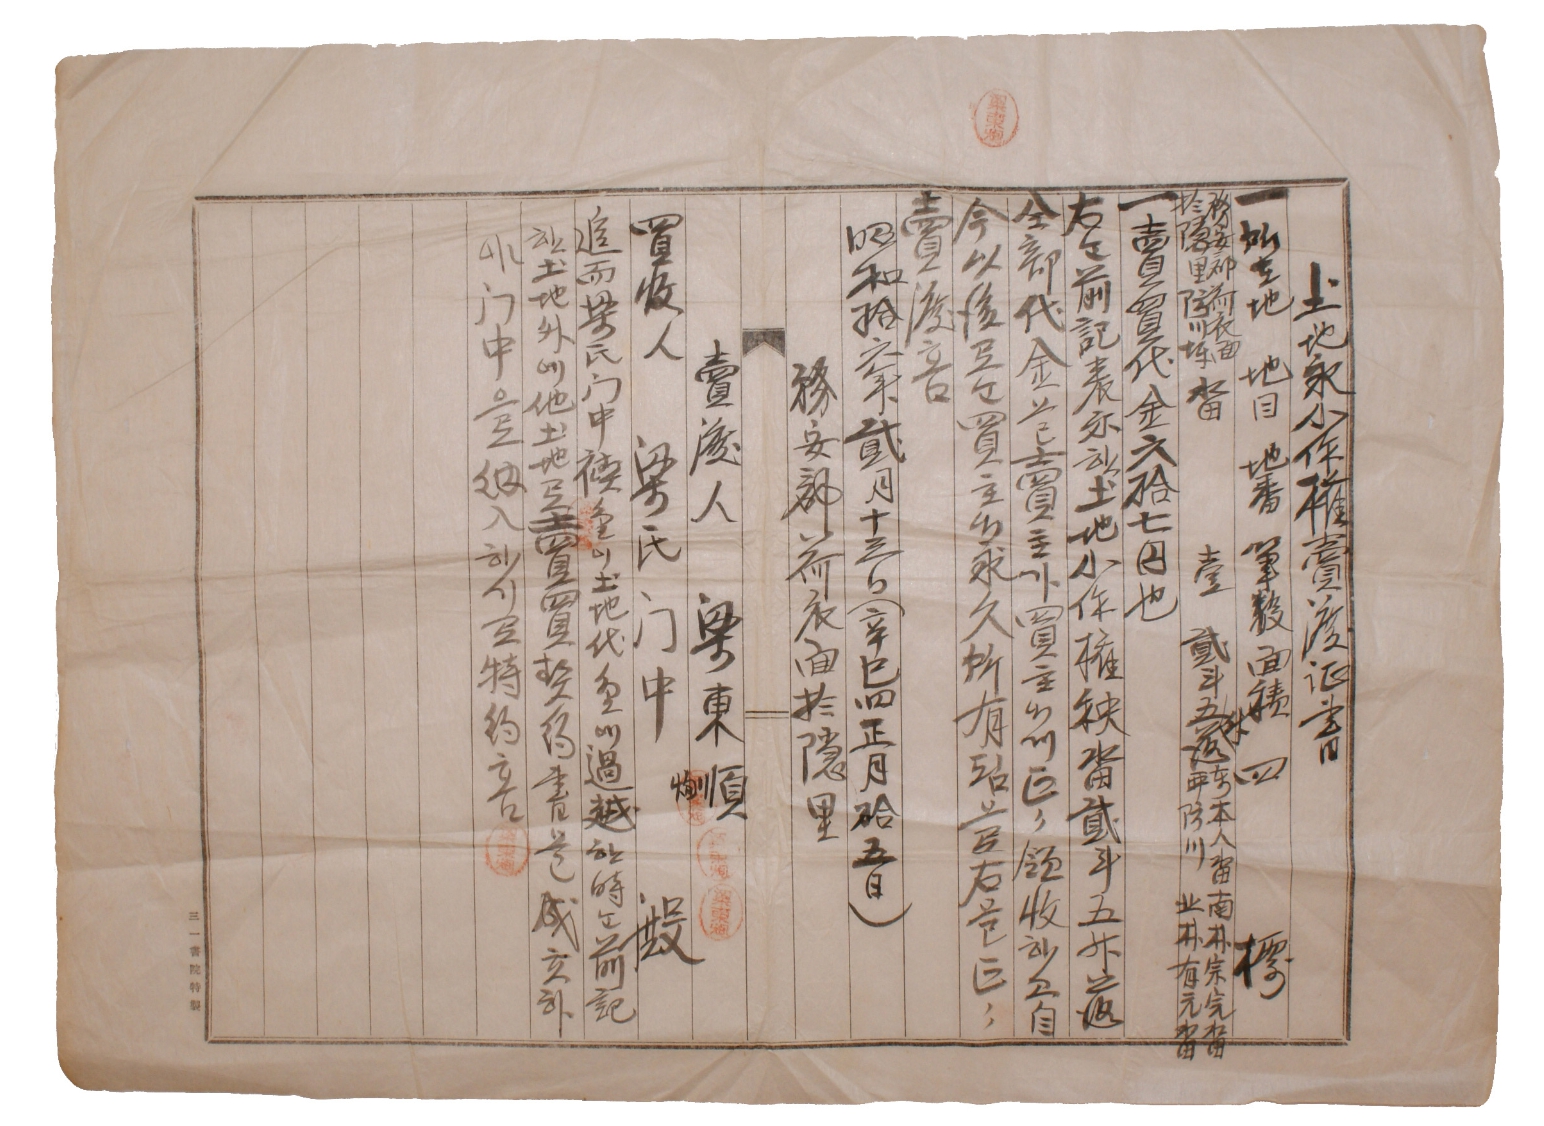 土地永小作權賣渡証書
一 所在地 地目 地番 筆數 面積 四 標
務安郡荷衣面
於隱里 防川坪 畓 壹 貳斗五升落 東本人畓 南朴宗完畓
西防川 北朴有元畓
一 賣買代金六拾七円也
右는 前記表示한土地小作權秧畓貳斗五升落
全部代金을 賣主가 買主의게 正히 領收하고 自
今以後로는 買主의 永久 所有됨을 右를 正히
賣渡홈
昭和拾六年貳月十三日(辛巳 正月拾五日)
務安郡荷衣面於隱里
賣渡人 梁東順
買收人 梁氏 门中 殿
追而梁氏门中 土地代金 過越 時는前記
土地外에 他土地로 賣買契約書를 成立하
야 门中으로 納入하시로 特約홈
三一書院特製